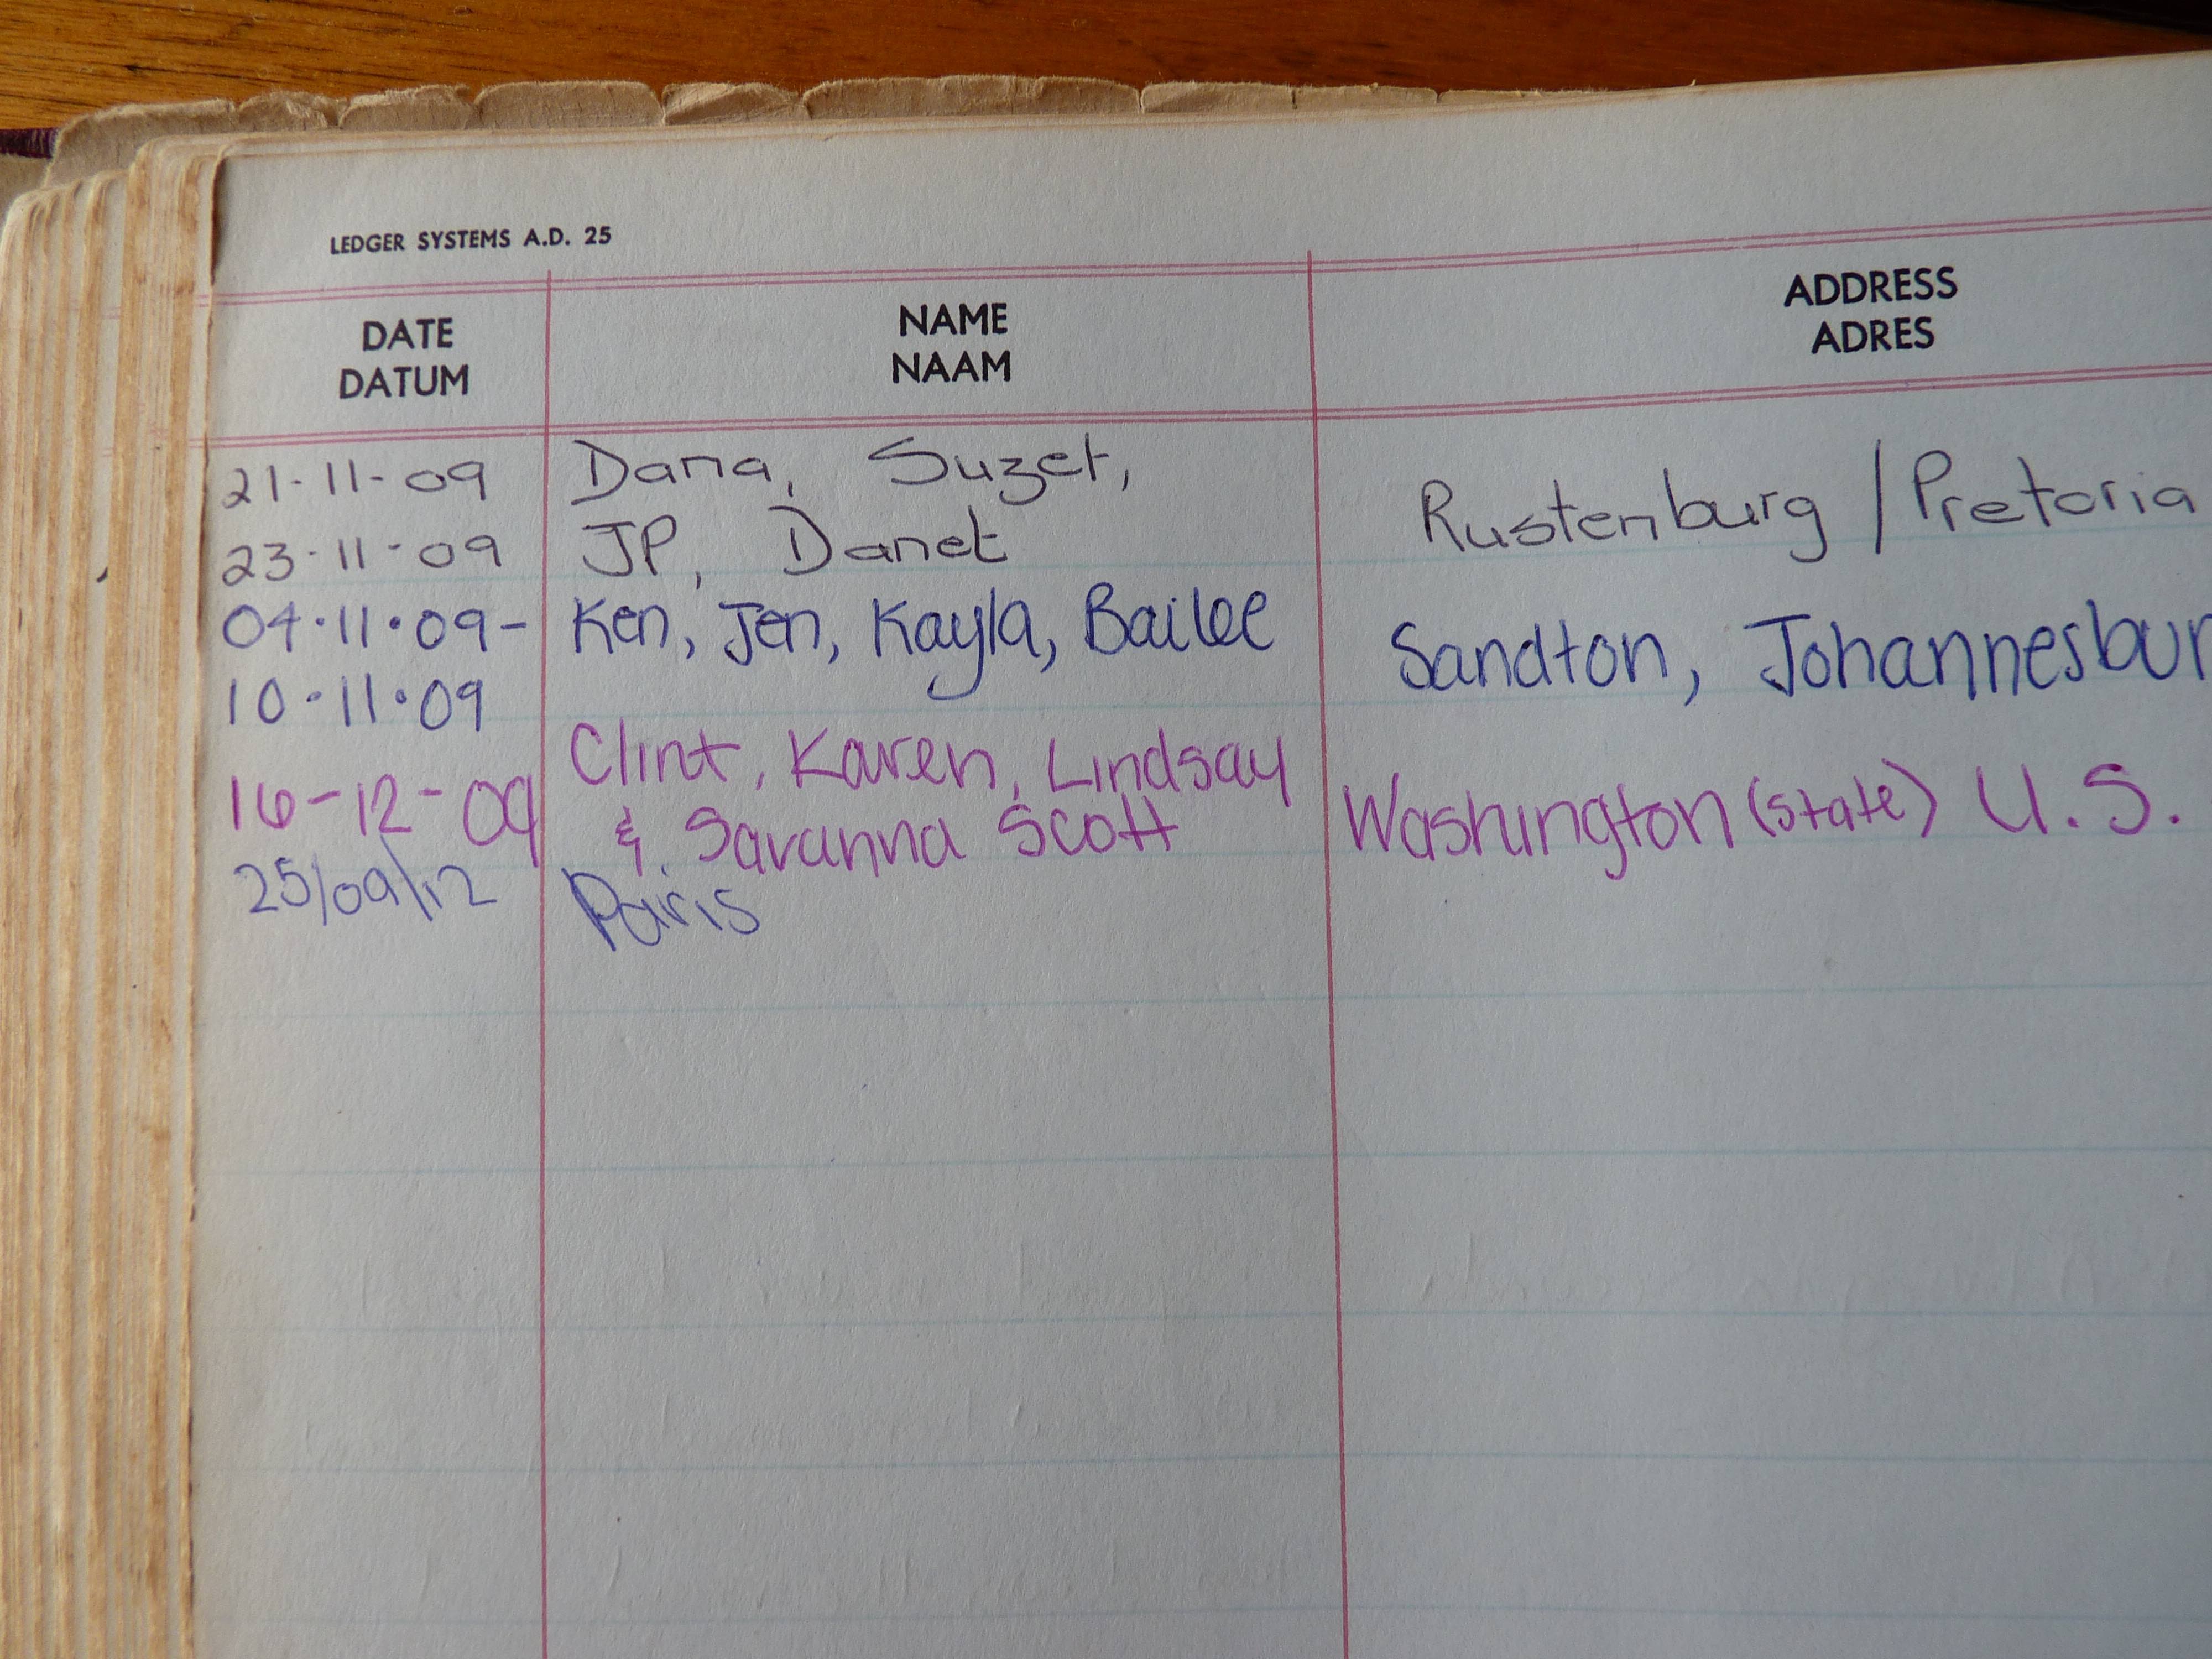 LEDGER SYSTEMS A.D. 25
DATE NAME ADDRESS
DATUM NAAM ADRES
21-11-09 Dana, Suzet, Rustenburg / Pretoria
23-11-09 JP, Danet
04.11.09- Ken, Jen, Kayla, Bailee Sandton, Johannesbur
10-11.09
Clint, Karen, Lindsay
16-12-09 & Savanna Scott Washington (state) U.S.
25/09/12 Paris